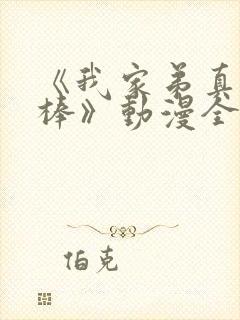 《我家弟真
棒》動漫全
伯克